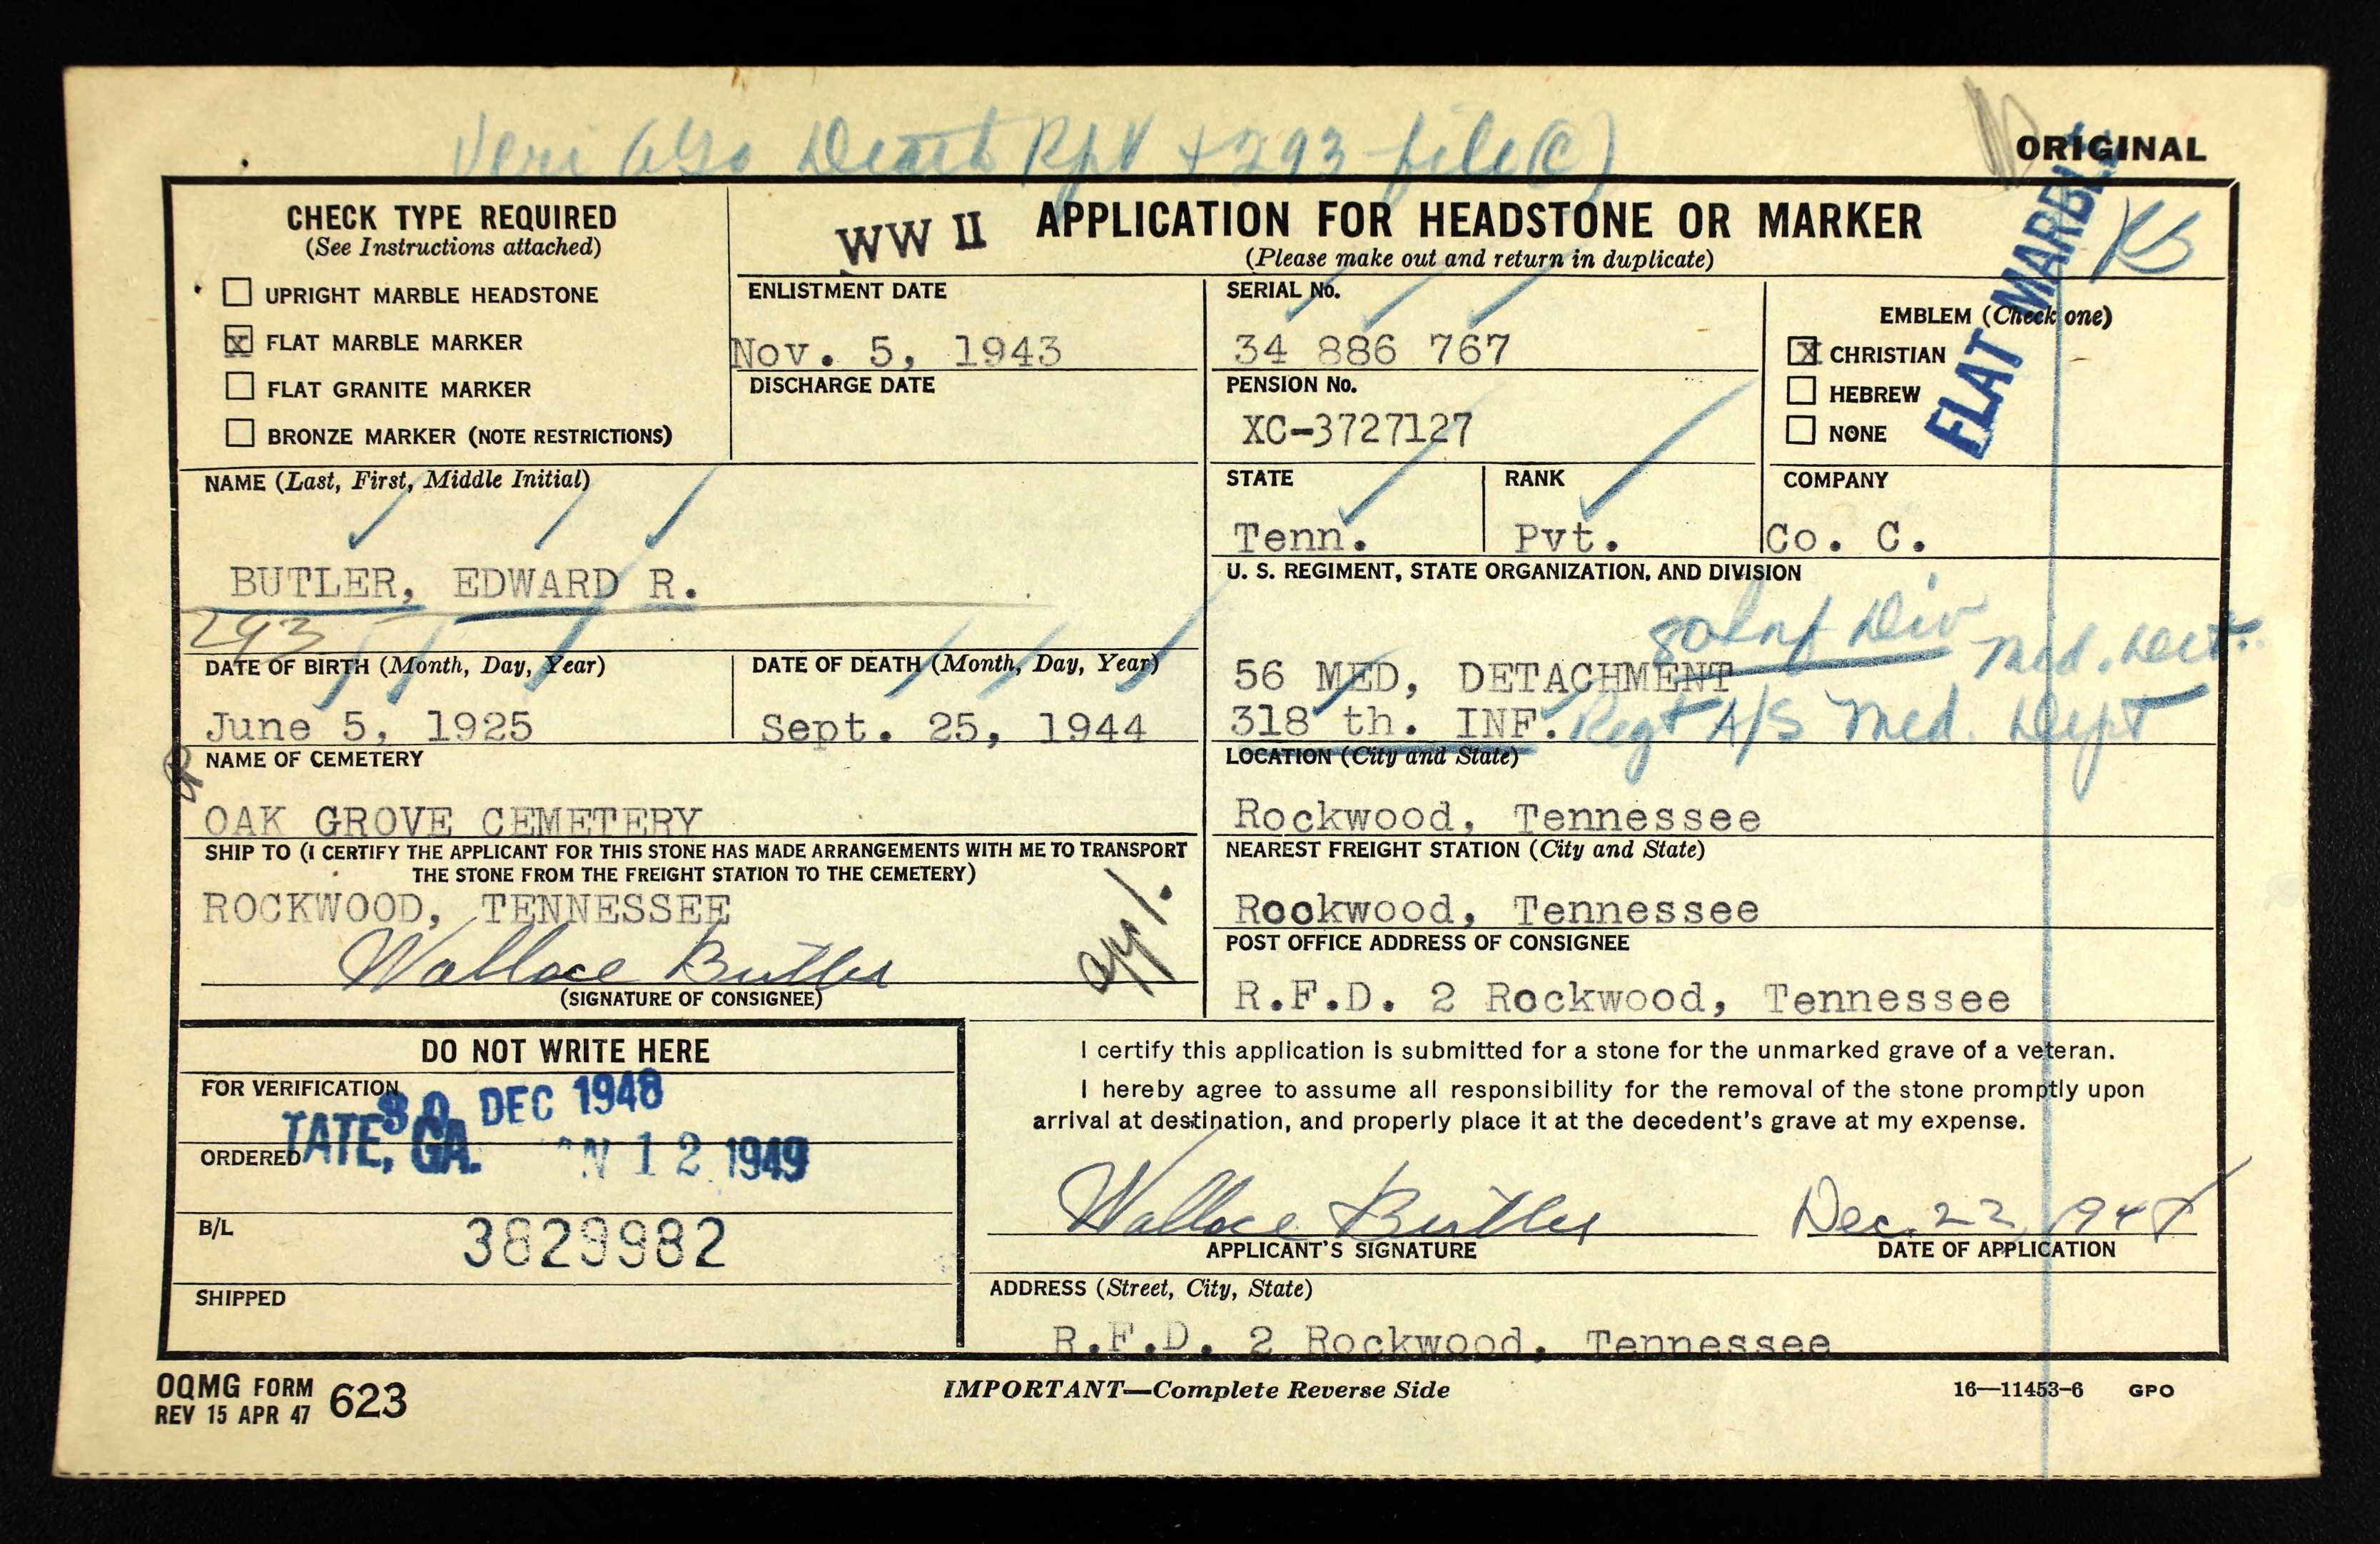 Veri Death Rpt + 293 file (C)
ORIGINAL
CHECK TYPE REQUIRED
(See Instructions attached)
UPRIGHT MARBLE HEADSTONE
X FLAT MARBLE MARKER
FLAT GRANITE MARKER
BRONZE MARKER (NOTE RESTRICTIONS)
WW II
APPLICATION FOR HEADSTONE OR MARKER
(Please make out and return in duplicate)
FLAT MARBLE
ENLISTMENT DATE
Nov. 5, 1943
DISCHARGE DATE
SERIAL No.
34 886 767
PENSION No.
XC-3727127
EMBLEM (Check one)
X CHRISTIAN
HEBREW
NONE
NAME (Last, First, Middle Initial)
BUTLER, EDWARD R.
293
STATE
Tenn.
RANK
Pvt.
COMPANY
Co. C.
U. S. REGIMENT, STATE ORGANIZATION, AND DIVISION
80 Inf Div Med. Det.
56 MED, DETACHMENT
318 th. INF. Regt A/S Med. Dept
DATE OF BIRTH (Month, Day, Year)
June 5, 1925
DATE OF DEATH (Month, Day, Year)
Sept. 25, 1944
NAME OF CEMETERY
OAK GROVE CEMETERY
LOCATION (City and State)
Rockwood, Tennessee
SHIP TO (I CERTIFY THE APPLICANT FOR THIS STONE HAS MADE ARRANGEMENTS WITH ME TO TRANSPORT
THE STONE FROM THE FREIGHT STATION TO THE CEMETERY)
ROCKWOOD, TENNESSEE
Wallace Butler
(SIGNATURE OF CONSIGNEE)
appl.
NEAREST FREIGHT STATION (City and State)
Rookwood, Tennessee
POST OFFICE ADDRESS OF CONSIGNEE
R.F.D. 2 Rockwood, Tennessee
DO NOT WRITE HERE
FOR VERIFICATION
30 DEC 1948
TATE, GA.
ORDERED
12 1949
B/L
3829982
SHIPPED
I certify this application is submitted for a stone for the unmarked grave of a veteran.
I hereby agree to assume all responsibility for the removal of the stone promptly upon
arrival at destination, and properly place it at the decedent's grave at my expense.
Wallace Butler
APPLICANT'S SIGNATURE
Dec. 22, 1948
DATE OF APPLICATION
ADDRESS (Street, City, State)
R.F.D. 2 Rockwood, Tennessee
OQMG FORM 623
REV 15 APR 47
IMPORTANT—Complete Reverse Side
16—11453-6 GPO